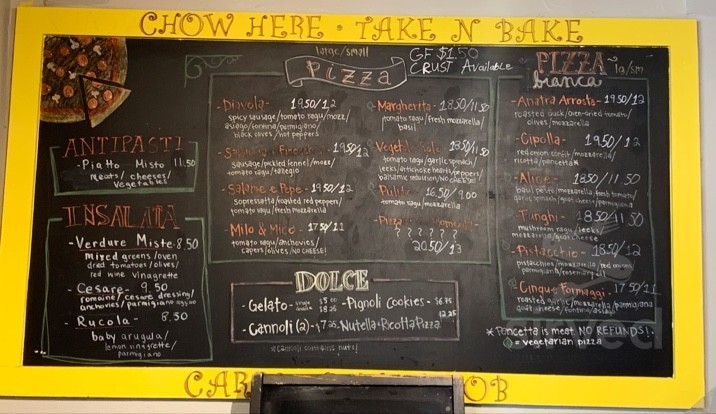 CHOW HERE · TAKE N BAKE
ANTIPASTI
-Piatto Misto 11.50
Meats/ cheeses/
Vegetables
INSALATA
-Verdure Miste-8.50
Mixed greens/oven
dried tomatoes/olives/
red wine vinagrette
-Cesare- 9.50
romaine/cesare dressing/
anchovies/parmigiano
-Rucola- 8.50
baby arugula/
lemon vinagrette/
parmigiano
large/small
Pizza
GF $1.50
CRUST Available
-Diavola- 19.50/12
spicy sausage/tomato ragu/mozz/
asiago/fontina/parmigiano/
black olives/hot peppers
19.50/12
sausage/pickled fennel/mozz/
tomato ragu/taleggio
-Salame e Pepe-19.50/12
sopressatta/roasted red peppers/
tomato ragu/fresh mozzarella
-Milo & Mico- 17.50/11
tomato ragu/anchovies/
capers/olives/NO CHEESE!
-Margherita-18.50/11.50
tomato ragu/fresh mozzarella/
basil
18.50/11.50
tomato ragu/garlic spinach/
leeks/artichoke hearts/peppers/
balsamic reduction/NO CHEESE!
16.50/9.00
tomato ragu/mozzarella
-Pizza
? ? ? ? ? ?
20.50/13
DOLCE
-Gelato-
-Pignoli Cookies-
-Cannoli (2)- Nutella+Ricotta Pizza
*cannoli contains nuts!
PIZZA lg/sm
bianca
-Anatra Arrosto-19.50/12
roasted duck/oven-dried tomato/
olives/mozzarella
-Cipolla- 19.50/12
red onion confit/mozzarella/
ricotta/pancetta*
-Alice- 18.50/11.50
basil pesto/mozzarella/fresh tomato/
garlic spinach/goat cheese/parmigiano
-Funghi- 18.50/11.50
mushroom ragu/leeks/
mozzarella/goat cheese
-Pistacchio- 18.50/12
pistaschios/mozzarella/red onion
parmigiano/rosemary
-Cinque Formaggi- 17.50/11
roasted garlic/mozzarella/parmigiano
goat cheese/fontina/asiago
*Pancetta is meat NO REFUNDS!
= vegetarian pizza
CAR OB